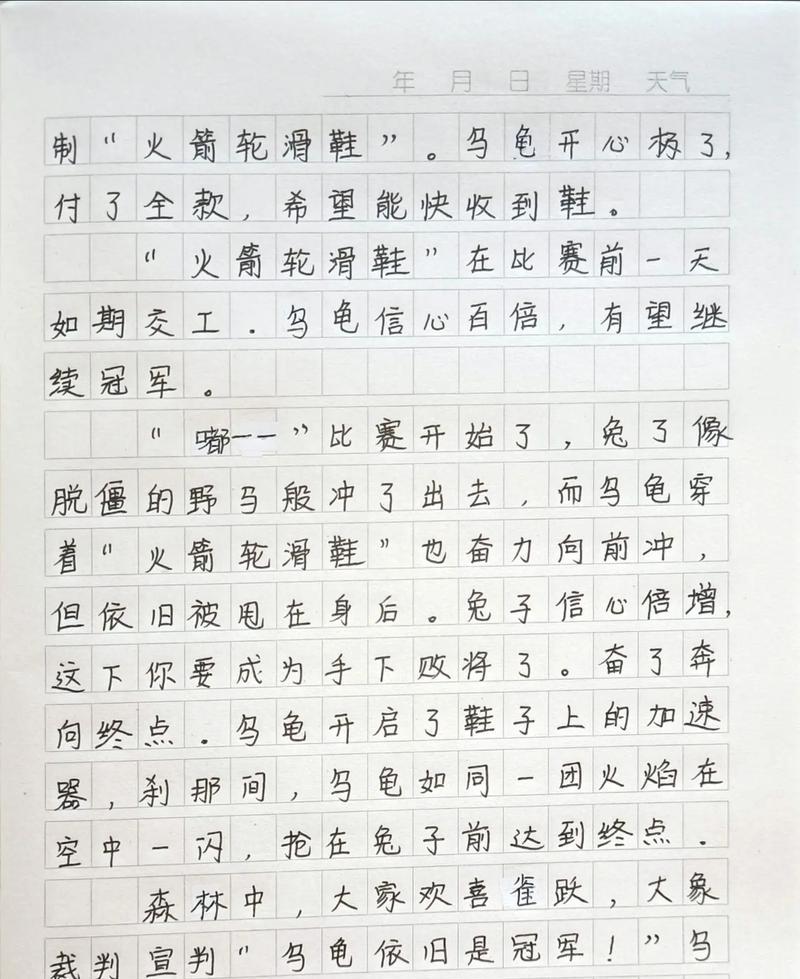 年 月 日 星期 天气
制“火箭轮滑鞋”。乌龟开心极了,
付了全款,希望能快收到鞋。
“火箭轮滑鞋”在比赛前一天
如期交工.乌龟信心百倍,有望继
续冠军。
“嘟一一”比赛开始了,兔了像
脱僵的野马般冲了出去,而乌龟穿
着“火箭轮滑鞋”也奋力向前冲,
但依旧被甩在身后。兔子信心倍增,
这下你要成为手下败将了。奋了奔
向终点.乌龟开启了鞋子上的加速
器,刹那间,乌龟如同一团火焰在
空中一闪,抢在兔子前达到终点.
森林中,大家欢喜雀跃,大象
裁判宣判“乌龟依旧是冠军!”乌